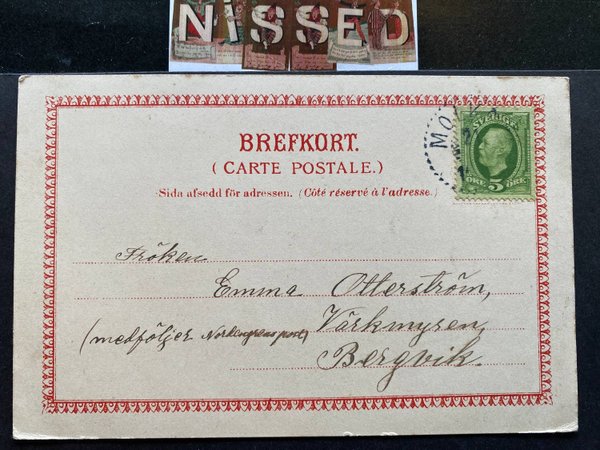 NiSSED
BREFKORT.
(CARTE POSTALE.)
Sida afsedd för adressen. (Côté réservé à l'adresse.)
SVERIGE
ÖRE 5 ÖRE
Fröken
Emma Otterström,
(medföljer
Värkmyren,
Bergvik.